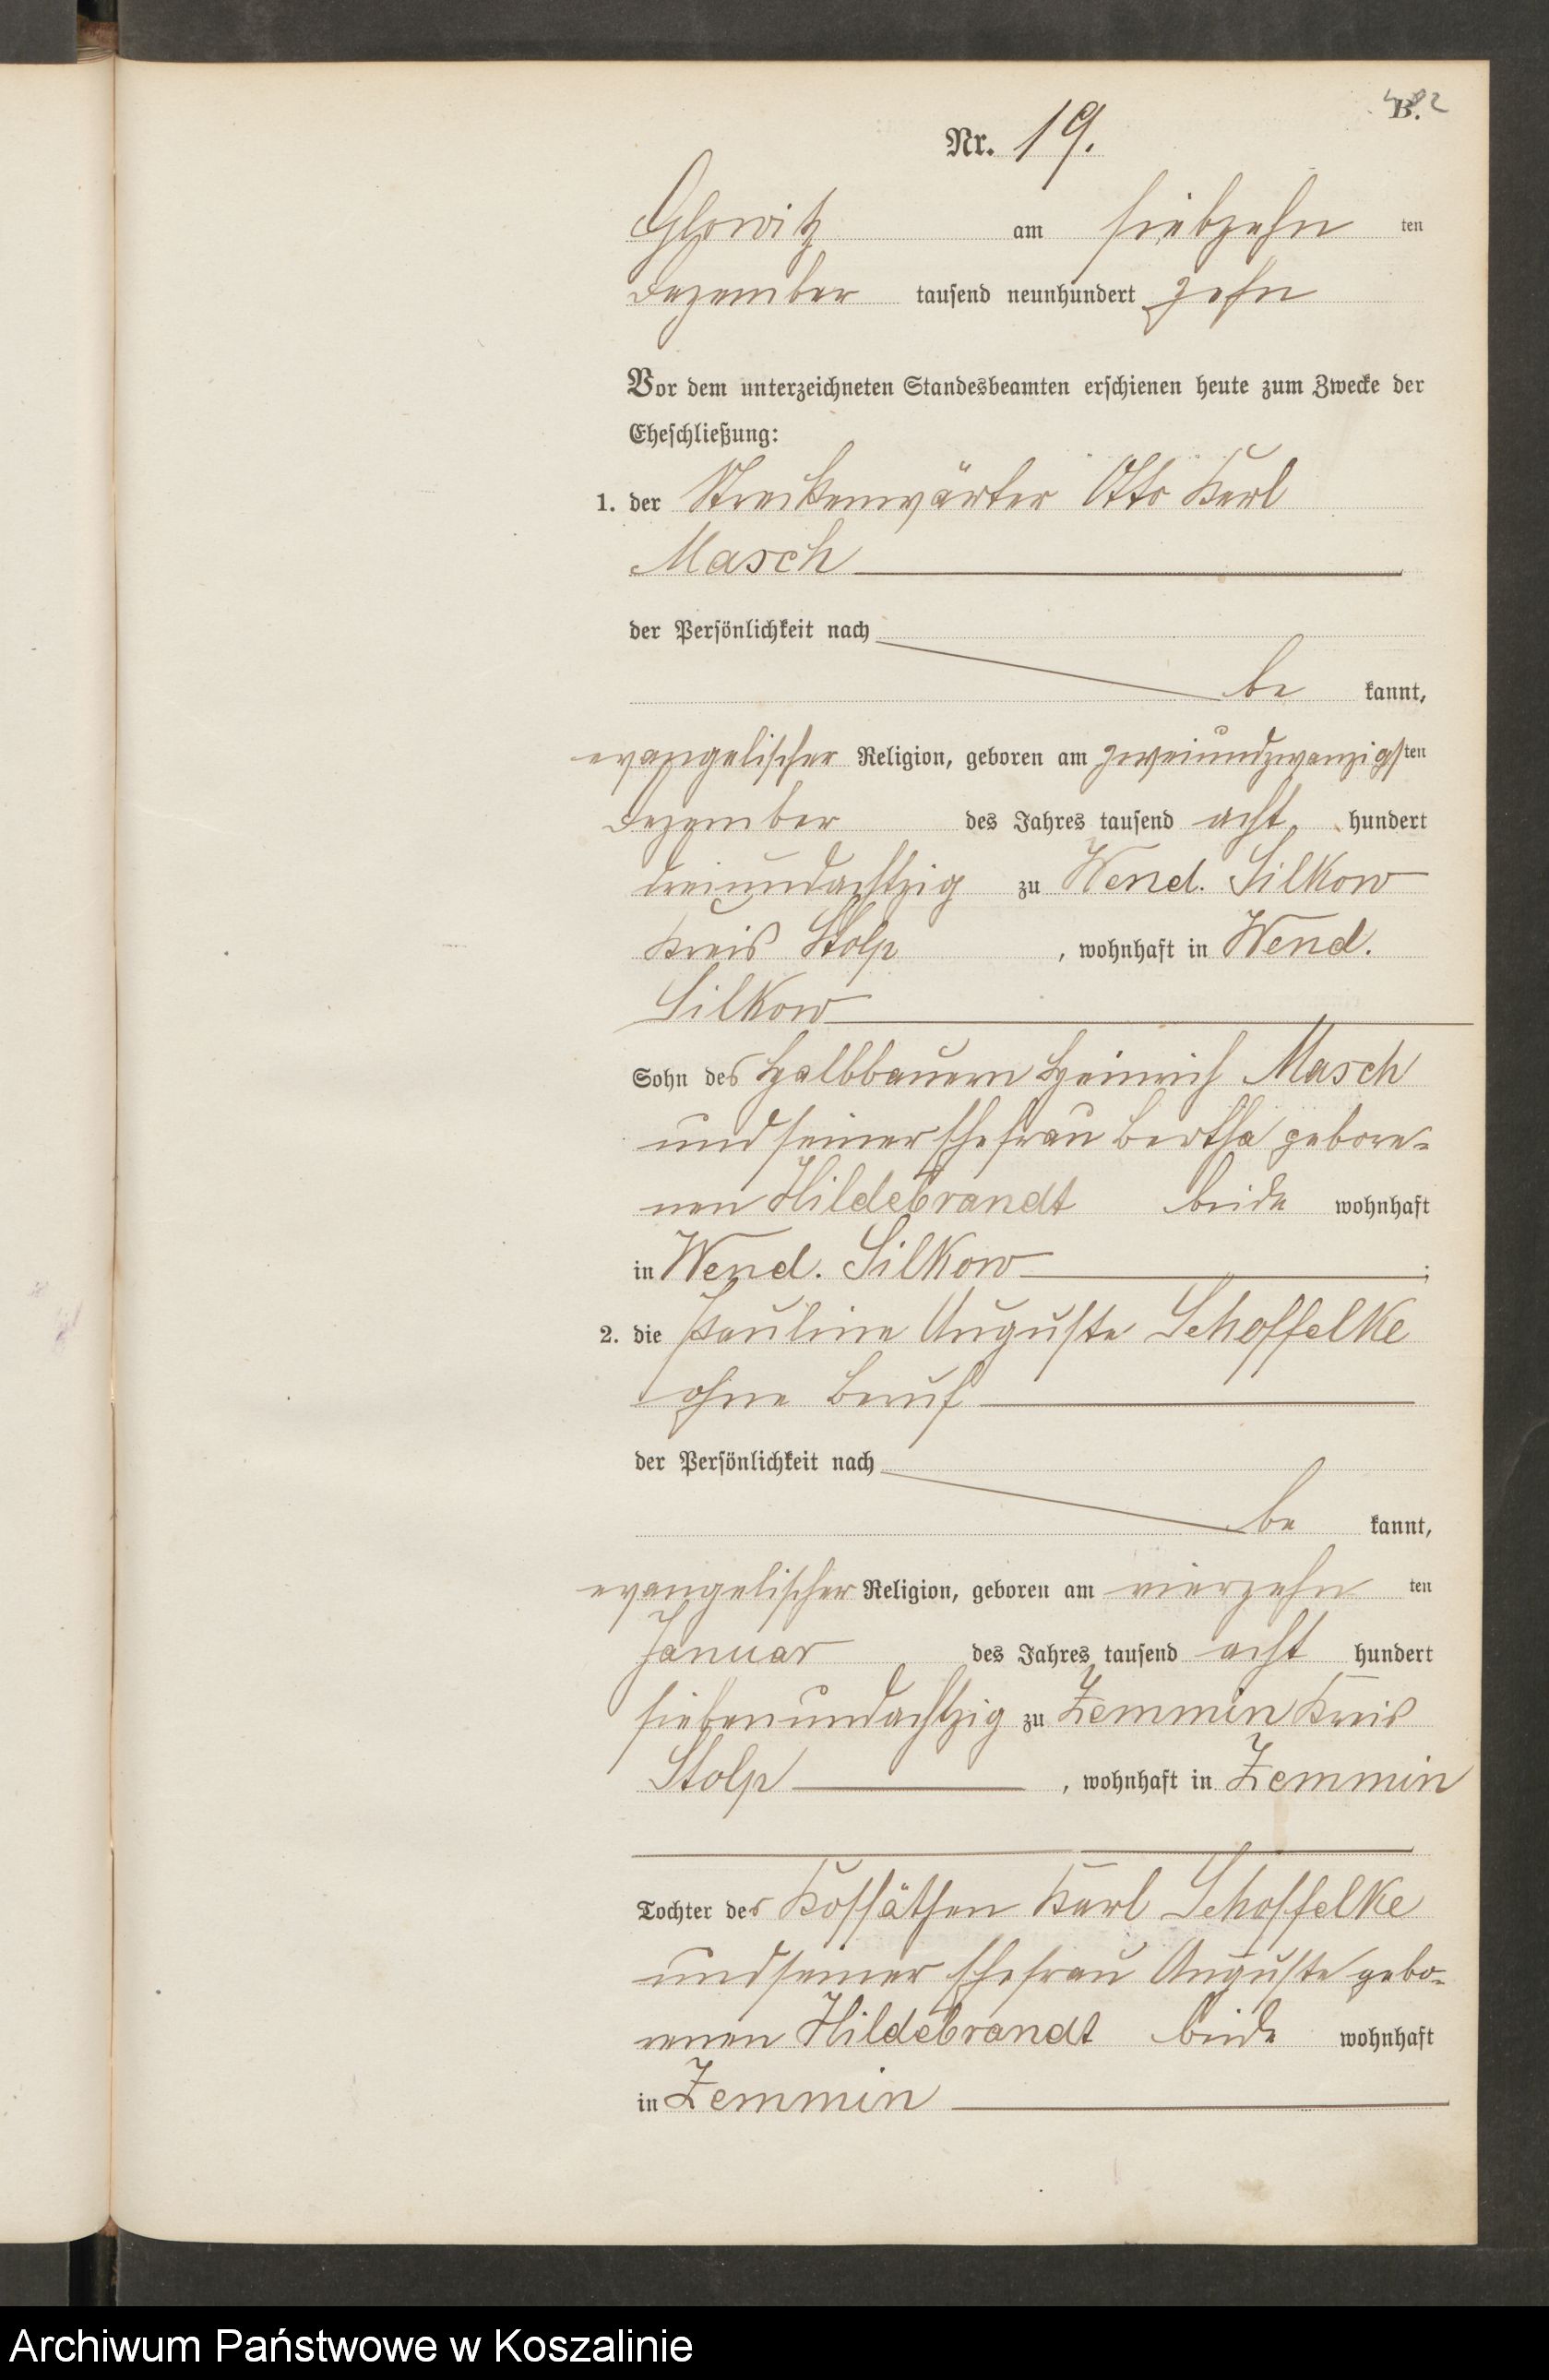 B.
Nr. 19.
Glowitz am siebzehn ten
Dezember tausend neunhundert zehn
Vor dem unterzeichneten Standesbeamten erschienen heute zum Zwecke der
Eheschließung:
1. der Streckenwärter Otto Karl
Masch
der Persönlichkeit nach
be kannt,
evangelischer Religion, geboren am zweiundzwanzigsten
Dezember des Jahres tausend acht hundert
dreiundachtzig zu Wend. Silkow
Kreis Stolp, wohnhaft in Wend.
Silkow
Sohn des Halbbauern Heinrich Masch
und seiner Ehefrau Bertha gebore-
nen Hildebrandt beide wohnhaft
in Wend. Silkow ;
2. die Pauline Auguste Schoffelke
ohne Beruf
der Persönlichkeit nach
be kannt,
evangelischer Religion, geboren am vierzehn ten
Januar des Jahres tausend acht hundert
siebenundachtzig zu Zemmin Kreis
Stolp, wohnhaft in Zemmin
Tochter des Kossäthen Karl Schoffelke
und seiner Ehefrau Auguste gebo-
renen Hildebrandt beide wohnhaft
in Zemmin
Archiwum Państwowe w Koszalinie